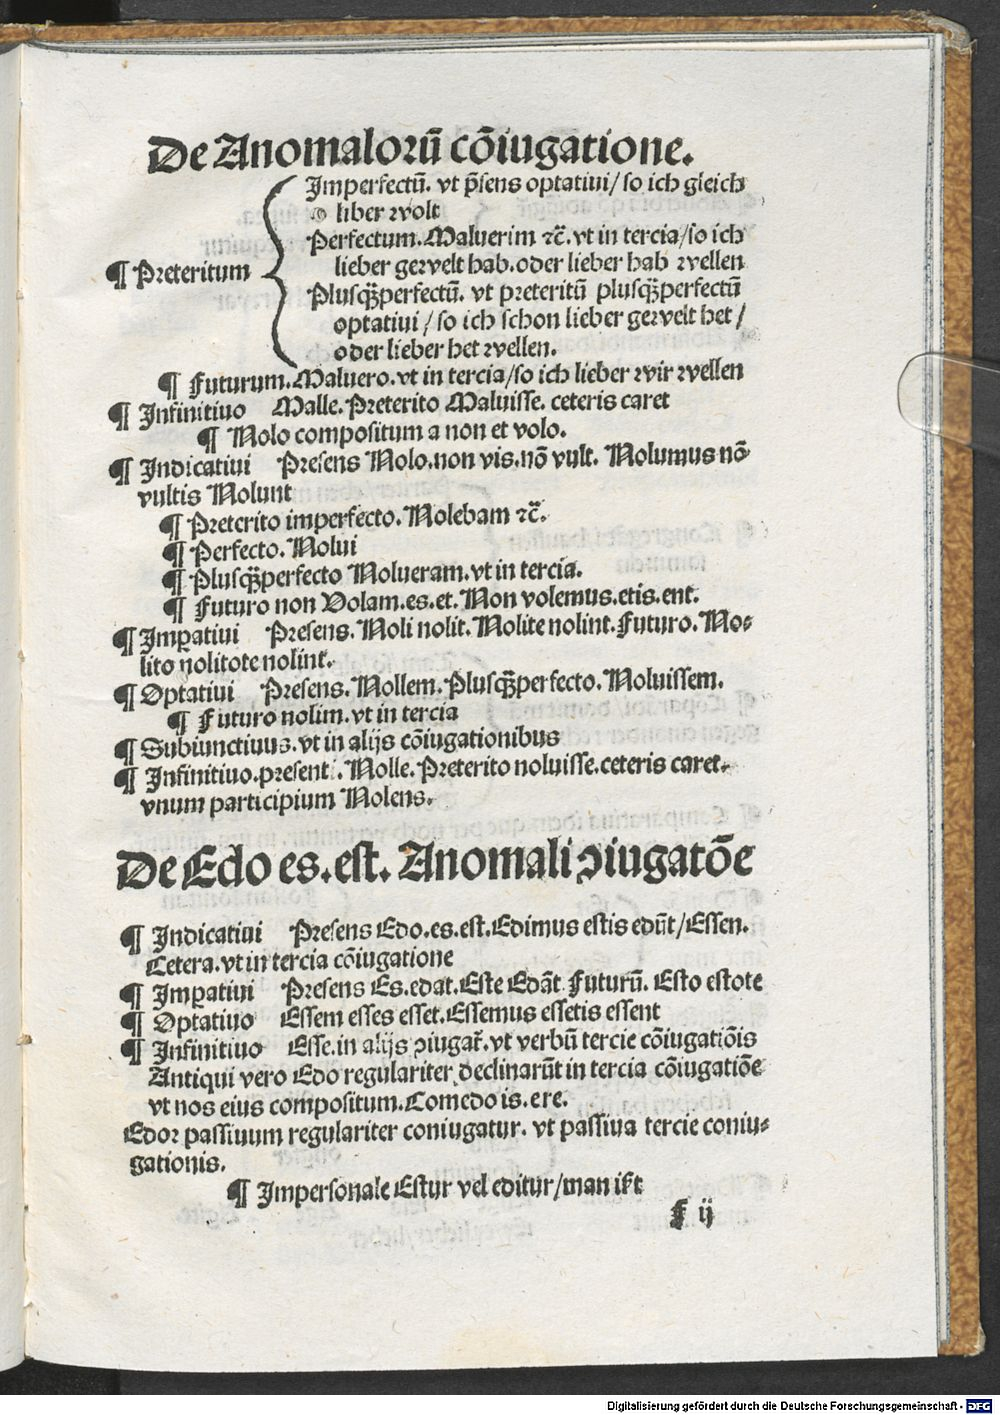 De Anomaloꝝ̄ cōiugatione.
Imperfectū. vt p̄sens optatiui/so ich gleich
liber wolt
Perfectum. Maluerim ⁊c̄. vt in tercia/so ich
lieber gewelt hab. oder lieber hab wellen
¶ Preteritum
Plusq̈ꝫperfectū. vt preteritū plusq̈ꝫperfectū
optatiui/so ich schon lieber gewelt het/
oder lieber het wellen.
¶ Futurum. Maluero. vt in tercia/so ich lieber wir wellen
¶ Infinitiuo Malle. Preterito Maluisse. ceteris caret
¶ Nolo compositum a non et volo.
¶ Indicatiui Presens Nolo. non vis. nō vult. Nolumus nō
vultis Nolunt
¶ Preterito imperfecto. Nolebam ⁊c̄.
¶ Perfecto. Nolui
¶ Plusq̈ꝫperfecto Nolueram. vt in tercia.
¶ Futuro non Volam. es. et. Non volemus. etis. ent.
¶ Imꝑatiui Presens. Noli nolit. Nolite nolint. Futuro. No-
lito nolitote nolint.
¶ Optatiui Presens. Nollem. Plusq̈ꝫperfecto. Noluissem.
¶ Futuro nolim. vt in tercia
¶ Subiunctiuus. vt in alijs cōiugationibus
¶ Infinitiuo. present. Nolle. Preterito noluisse. ceteris caret.
vnum participium Nolens.
De Edo es. est. Anomali ↄiugatōe
¶ Indicatiui Presens Edo. es. est. Edimus estis edūt/Essen.
Cetera. vt in tercia cōiugatione
¶ Imꝑatiui Presens Es. edat. Este Edāt Futurū. Esto estote
¶ Optatiuo Essem esses esset. Essemus essetis essent
¶ Infinitiuo Esse. in alijs ↄiugar̄. vt verbū tercie cōiugatiōis
Antiqui vero Edo regulariter declinarūt in tercia cōiugatiōe
vt nos eius compositum. Comedo is. ere.
Edor passiuum regulariter coniugatur. vt passiua tercie coniu-
gationis.
¶ Impersonale Estur vel editur/man ist
F ij
Digitalisierung gefördert durch die Deutsche Forschungsgemeinschaft - DFG